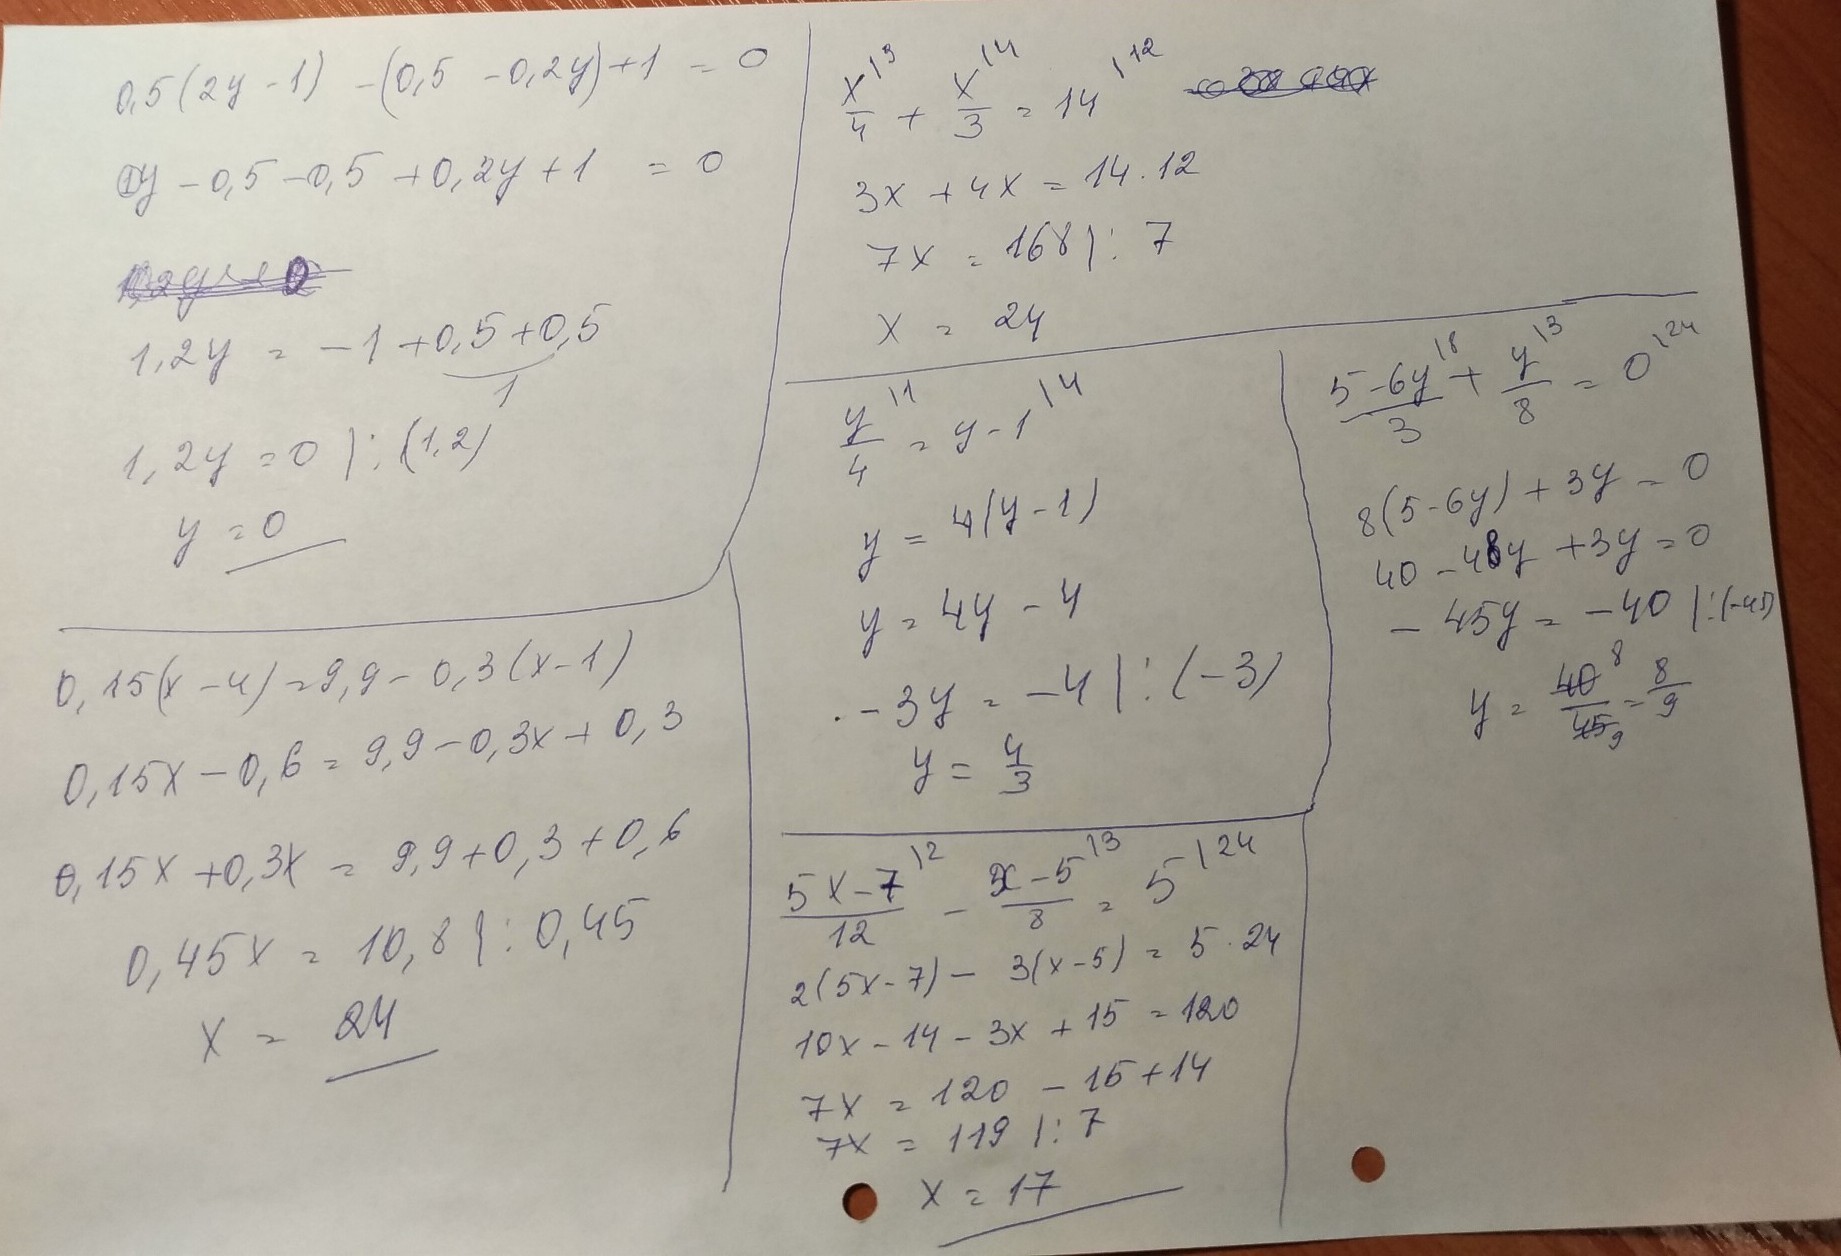 0,5(2y-1) -(0,5 -0,2y)+1 = 0
1y -0,5-0,5 +0,2y+1 = 0
1,2y = -1+0,5+0,5
1
1,2y=0 |:(1,2)
y=0
0,15(x-4)=9,9-0,3(x-1)
0,15x-0,6=9,9-0,3x+0,3
0,15x+0,3x = 9,9+0,3+0,6
0,45x = 10,8 |:0,45
x = 24
x/4 \3 + x/3 \4 = 14 \12
3x+4x=14·12
7x = 168 |: 7
x = 24
y/4 \1 = y-1 \4
y = 4(y-1)
y = 4y - 4
-3y = -4 |:(-3)
y = 4/3
5-6y/3 \8 + y/8 \3 = 0 \24
8(5-6y)+3y=0
40-48y+3y=0
-45y=-40 |:(-45)
y = 40/45 8 9 = 8/9
5x-7/12 \2 - x-5/8 \3 = 5 \24
2(5x-7)- 3(x-5) = 5·24
10x-14-3x+15=120
7x = 120 -15+14
7x = 119 |:7
x = 17